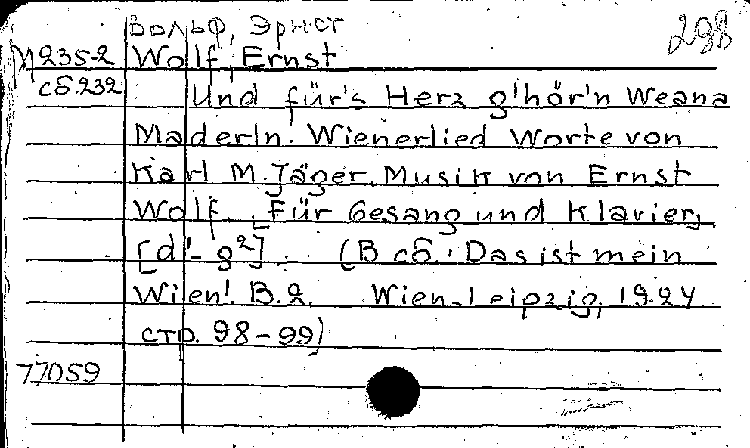 Вольф, Эрнст
298
М235-2 Wolf, Ernst
сб.232 Und für's Herz g'hör'n Weana
Maderln. Wienerlied Worte von
Karl M. Jäger. Musik von Ernst
Wolf. [Für Gesang und Klavier,
[d'-g²]. (В сб.: Das ist mein
Wien! B.2. Wien-Leipzig, 1924
стр. 98-99)
77059